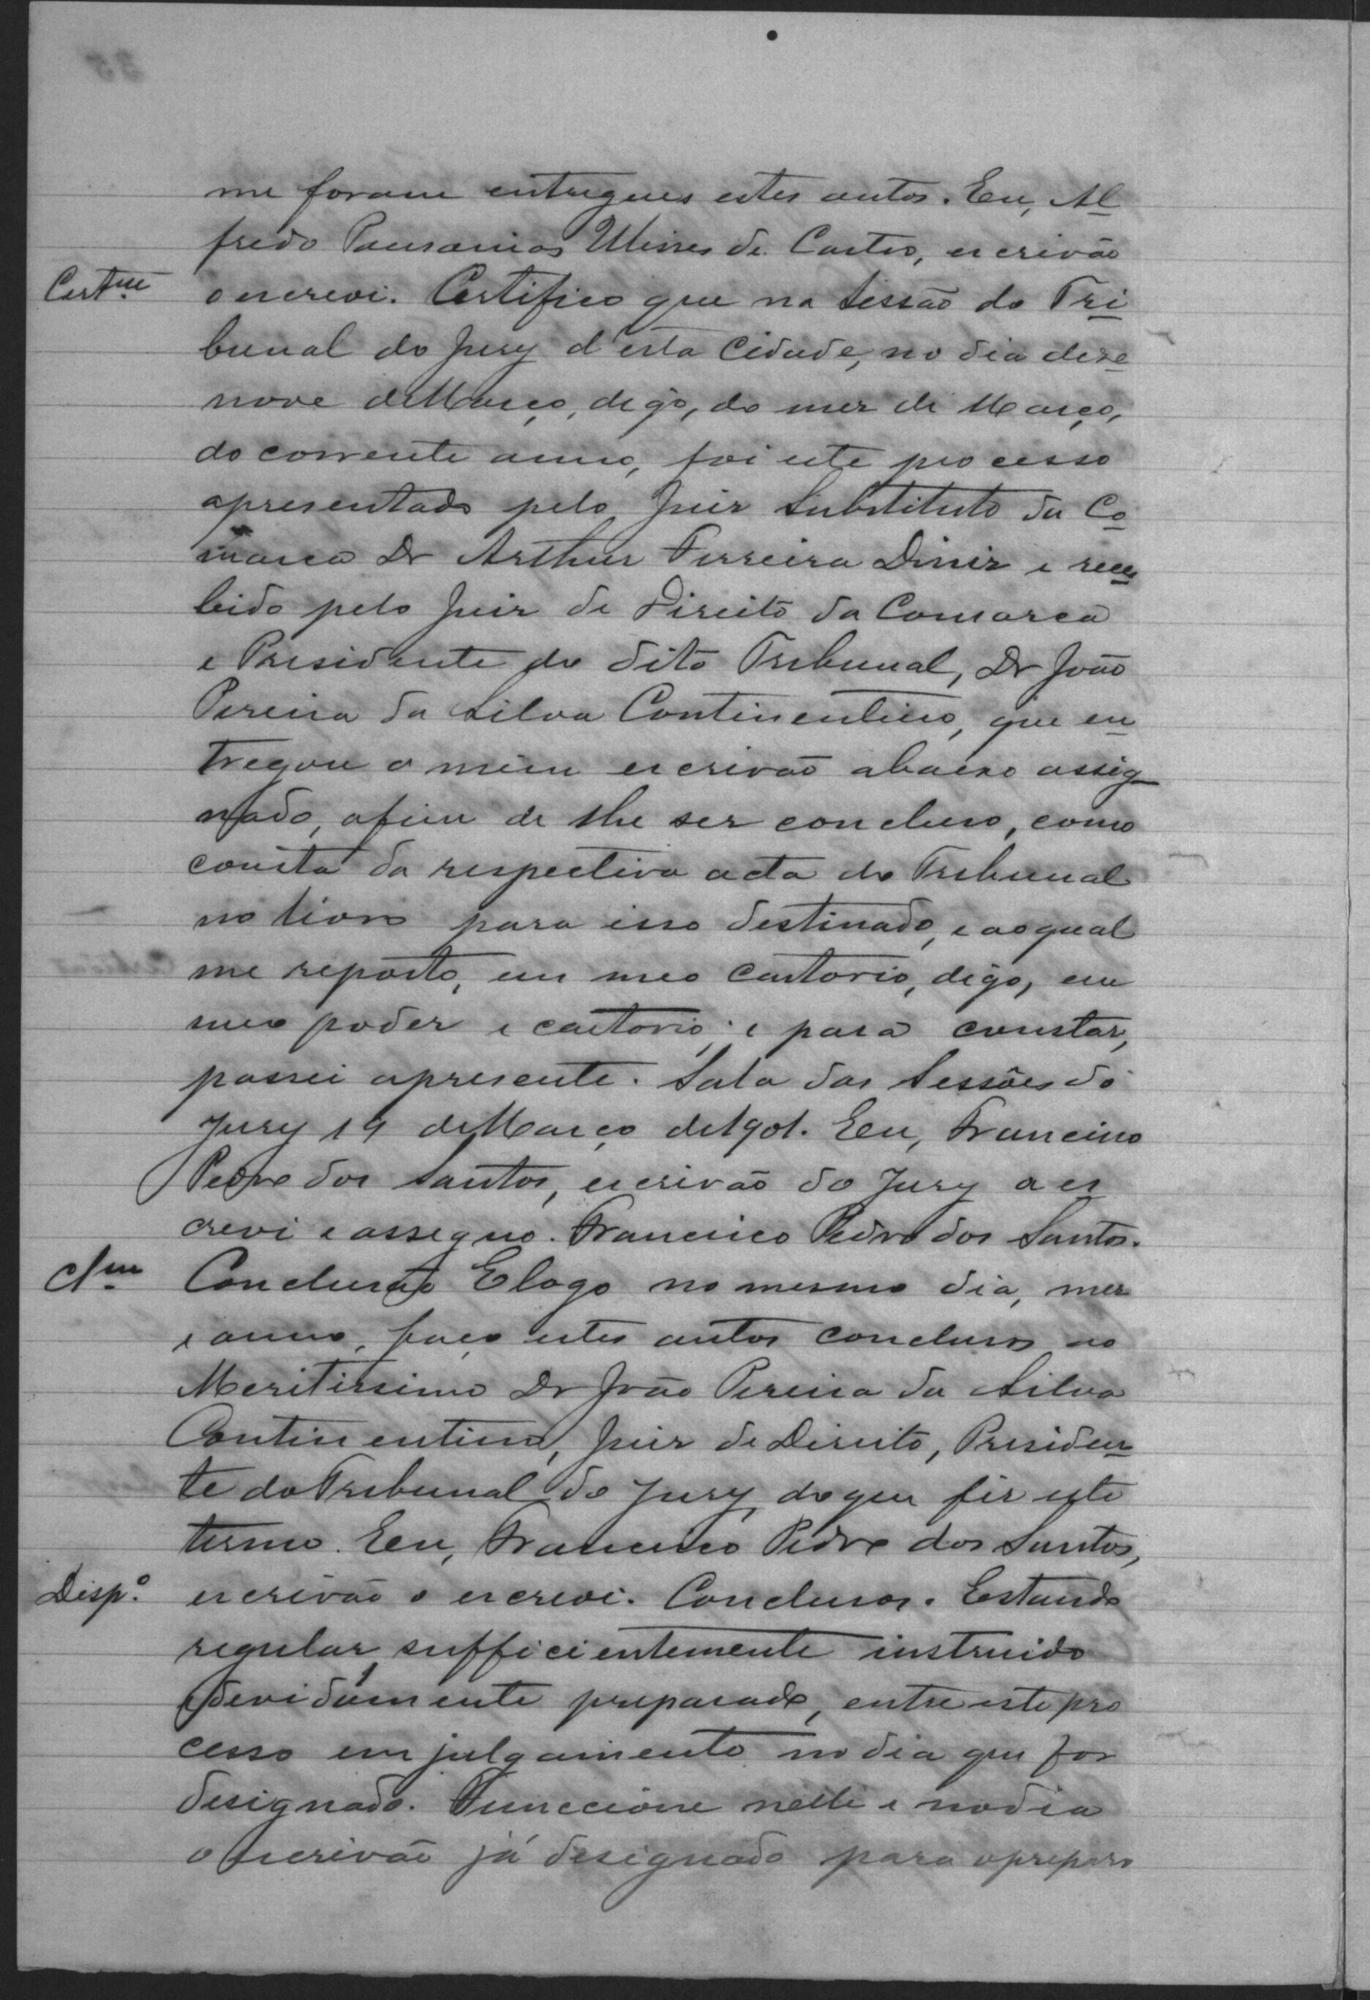 me foram entregues estes autos. Eu, Al
fredo Pausanias Ulisses de Castro, escrivão
Certam o escrevi. Certifico que na Sessão do Tri
bunal do Jury d'esta Cidade, no dia deze
nove de Março, digo, do mez de Março,
do corrente anno, foi este processo
apresentado pelo Juiz Substituto da Co
marca Dr Arthur Ferreira Diniz e rece
bido pelo Juiz de Direito da Comarca
e Presidente do dito Tribunal, Dr João
Pereira da Silva Continentino, que en
tregou a mim escrivão abaixo assig
nado, afim de lhe ser concluso, como
consta da respectiva acta do Tribunal
no livro para isso destinado, e ao qual
me reporto, em meo cartorio, digo, em
meo poder e cartorio; e para constar,
passei apresente. Sala das Sessões do
Jury 19 de Março de 1901. Eu, Francisco
Pedro dos Santos, escrivão do Jury a es
crevi e assegno. Francisco Pedro dos Santos.
Clsm Conclusão E logo no mesmo dia, mez
e anno, faço estes autos conclusos ao
Meritissimo Dr João Pereira da Silva
Continentino, Juiz de Direito, Presiden
te do Tribunal do Jury, do que fiz este
termo. Eu, Francisco Pedro dos Santos,
Disp.º escrivão o escrevi. Conclusos. Estando
regular, sufficientemente instruido
e devidamente preparado, entre este pro
cesso em julgamento no dia que for
designado. Funccione nelle e no dia
o escrivão já designado para o preparo